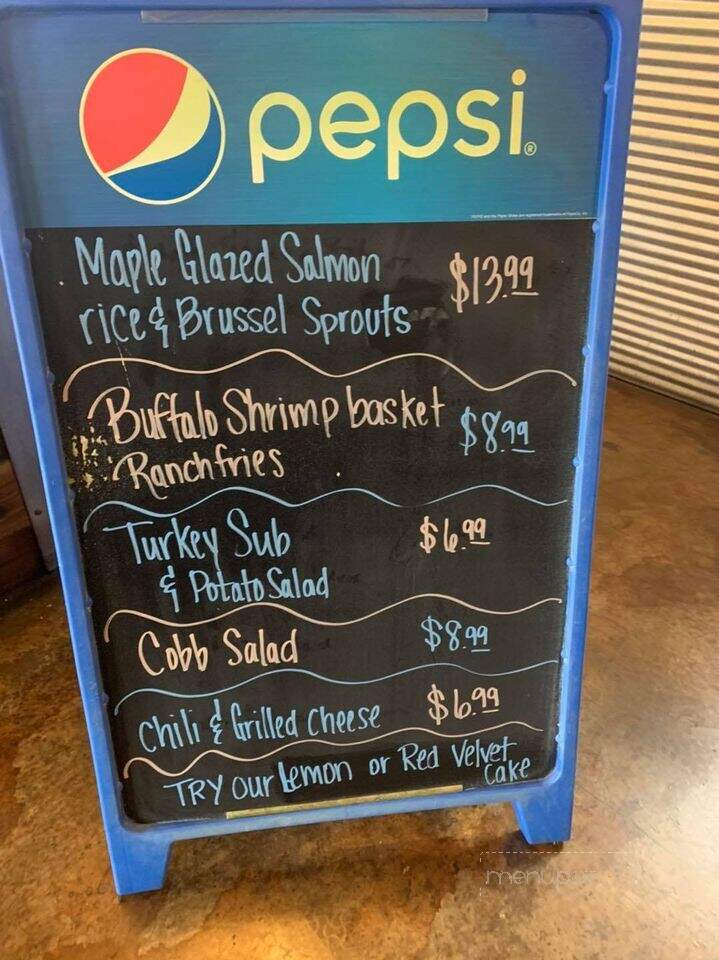 pepsi®
Maple Glazed Salmon $13.99
rice & Brussel Sprouts
Buffalo Shrimp basket $8.99
Ranch fries
Turkey Sub $6.99
& Potato Salad
Cobb Salad $8.99
Chili & Grilled Cheese $6.99
TRY our Lemon or Red Velvet
Cake